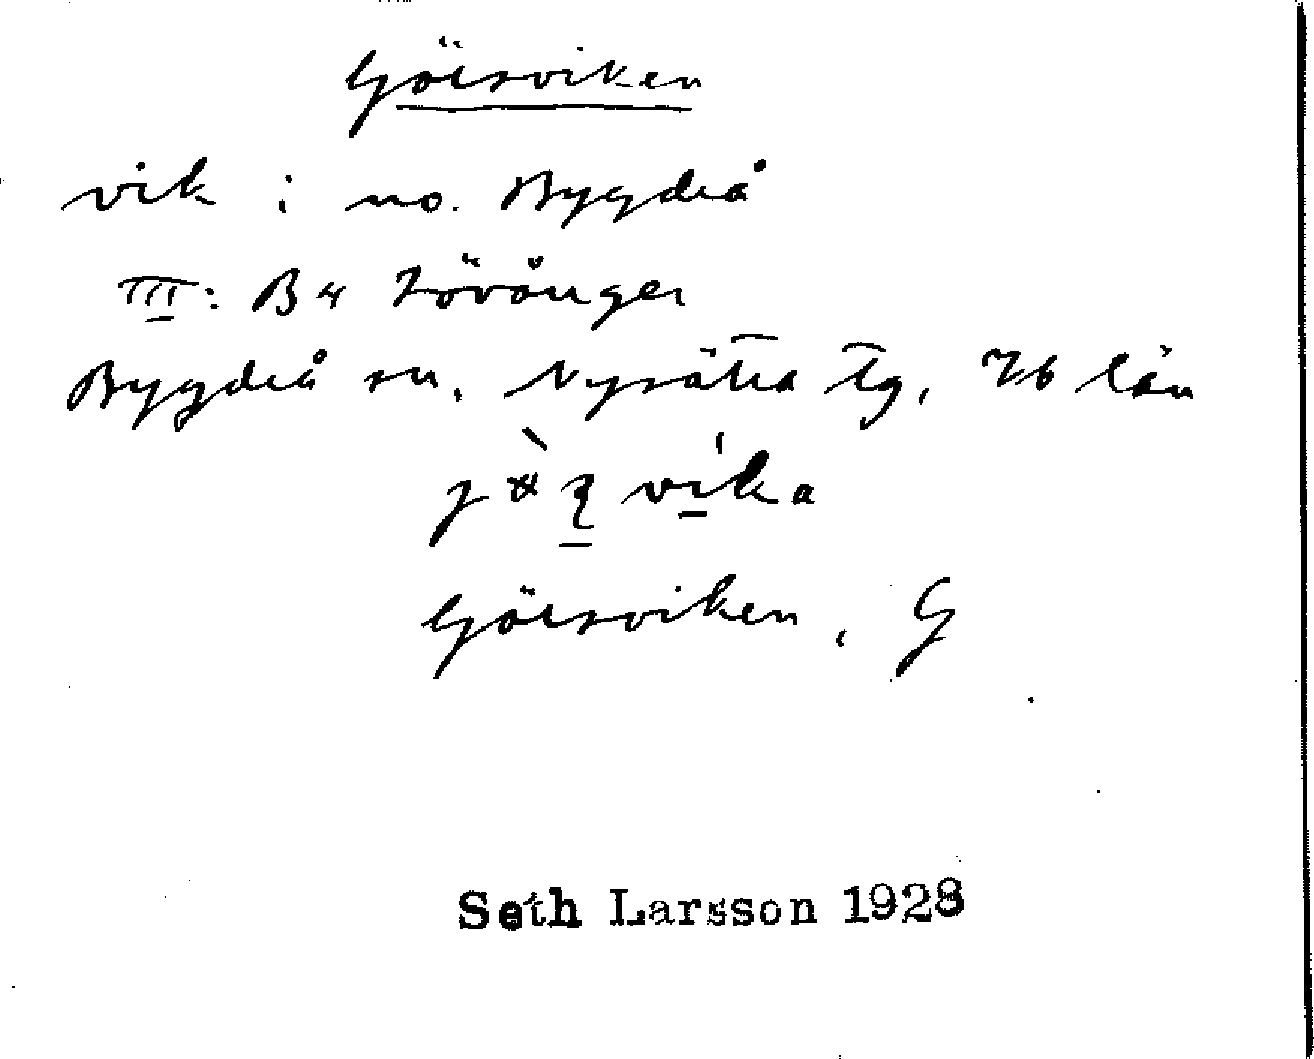 Görsviken
vik i no. Bygdeå
III: B4 Lövånger
Bygdeå sn, Nysätra tg, Vb län
Görsviken, G
Seth Larsson 1928